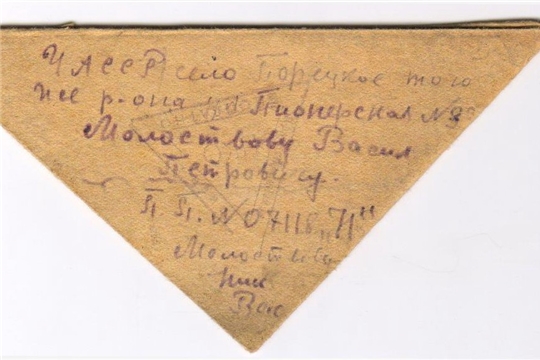 ЧАССР село Порецкое того
же р-она Пионерская №
Молоствову Васил
Петровичу.
П П. № 07116 „Н“
Молоствов
Ник
Вас